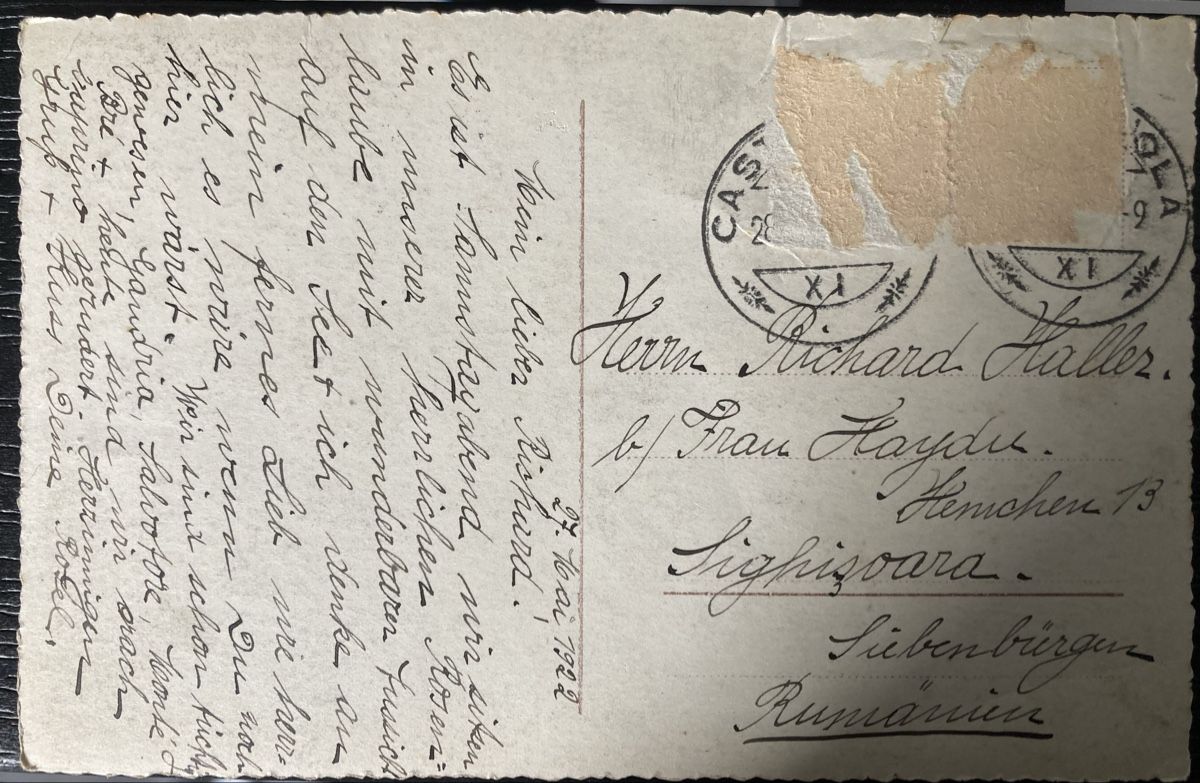 27. Mai 1922
Mein lieber Richard!
Es ist Samstagabend, wir sitzen
in unserer herrlichen Rosen=
laube mit wunderbarer Aussicht
auf den See + ich denke an
mein fernes Lieb wie herr-
lich es wäre wenn Du noch
hier wärst. Wir sind schon
gewesen, Gandria, Salvatore, Monte
Brè + heute sind wir nach
Caprino gerudert. Herzinnigen
Gruß + Kuss Deine Rosel.
CAS
OLA
XI
XI
Herrn Richard Haller.
b/ Frau Haydu.
Henchen 13
Sighişoara.
Siebenbürgen
Rumänien